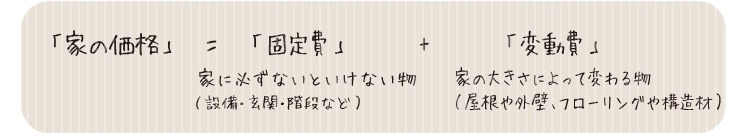 「家の価格」 = 「固定費」 + 「変動費」
家に必ずないといけない物 家の大きさによって変わる物
(設備・玄関・階段など) (屋根や外壁、フローリングや構造材)